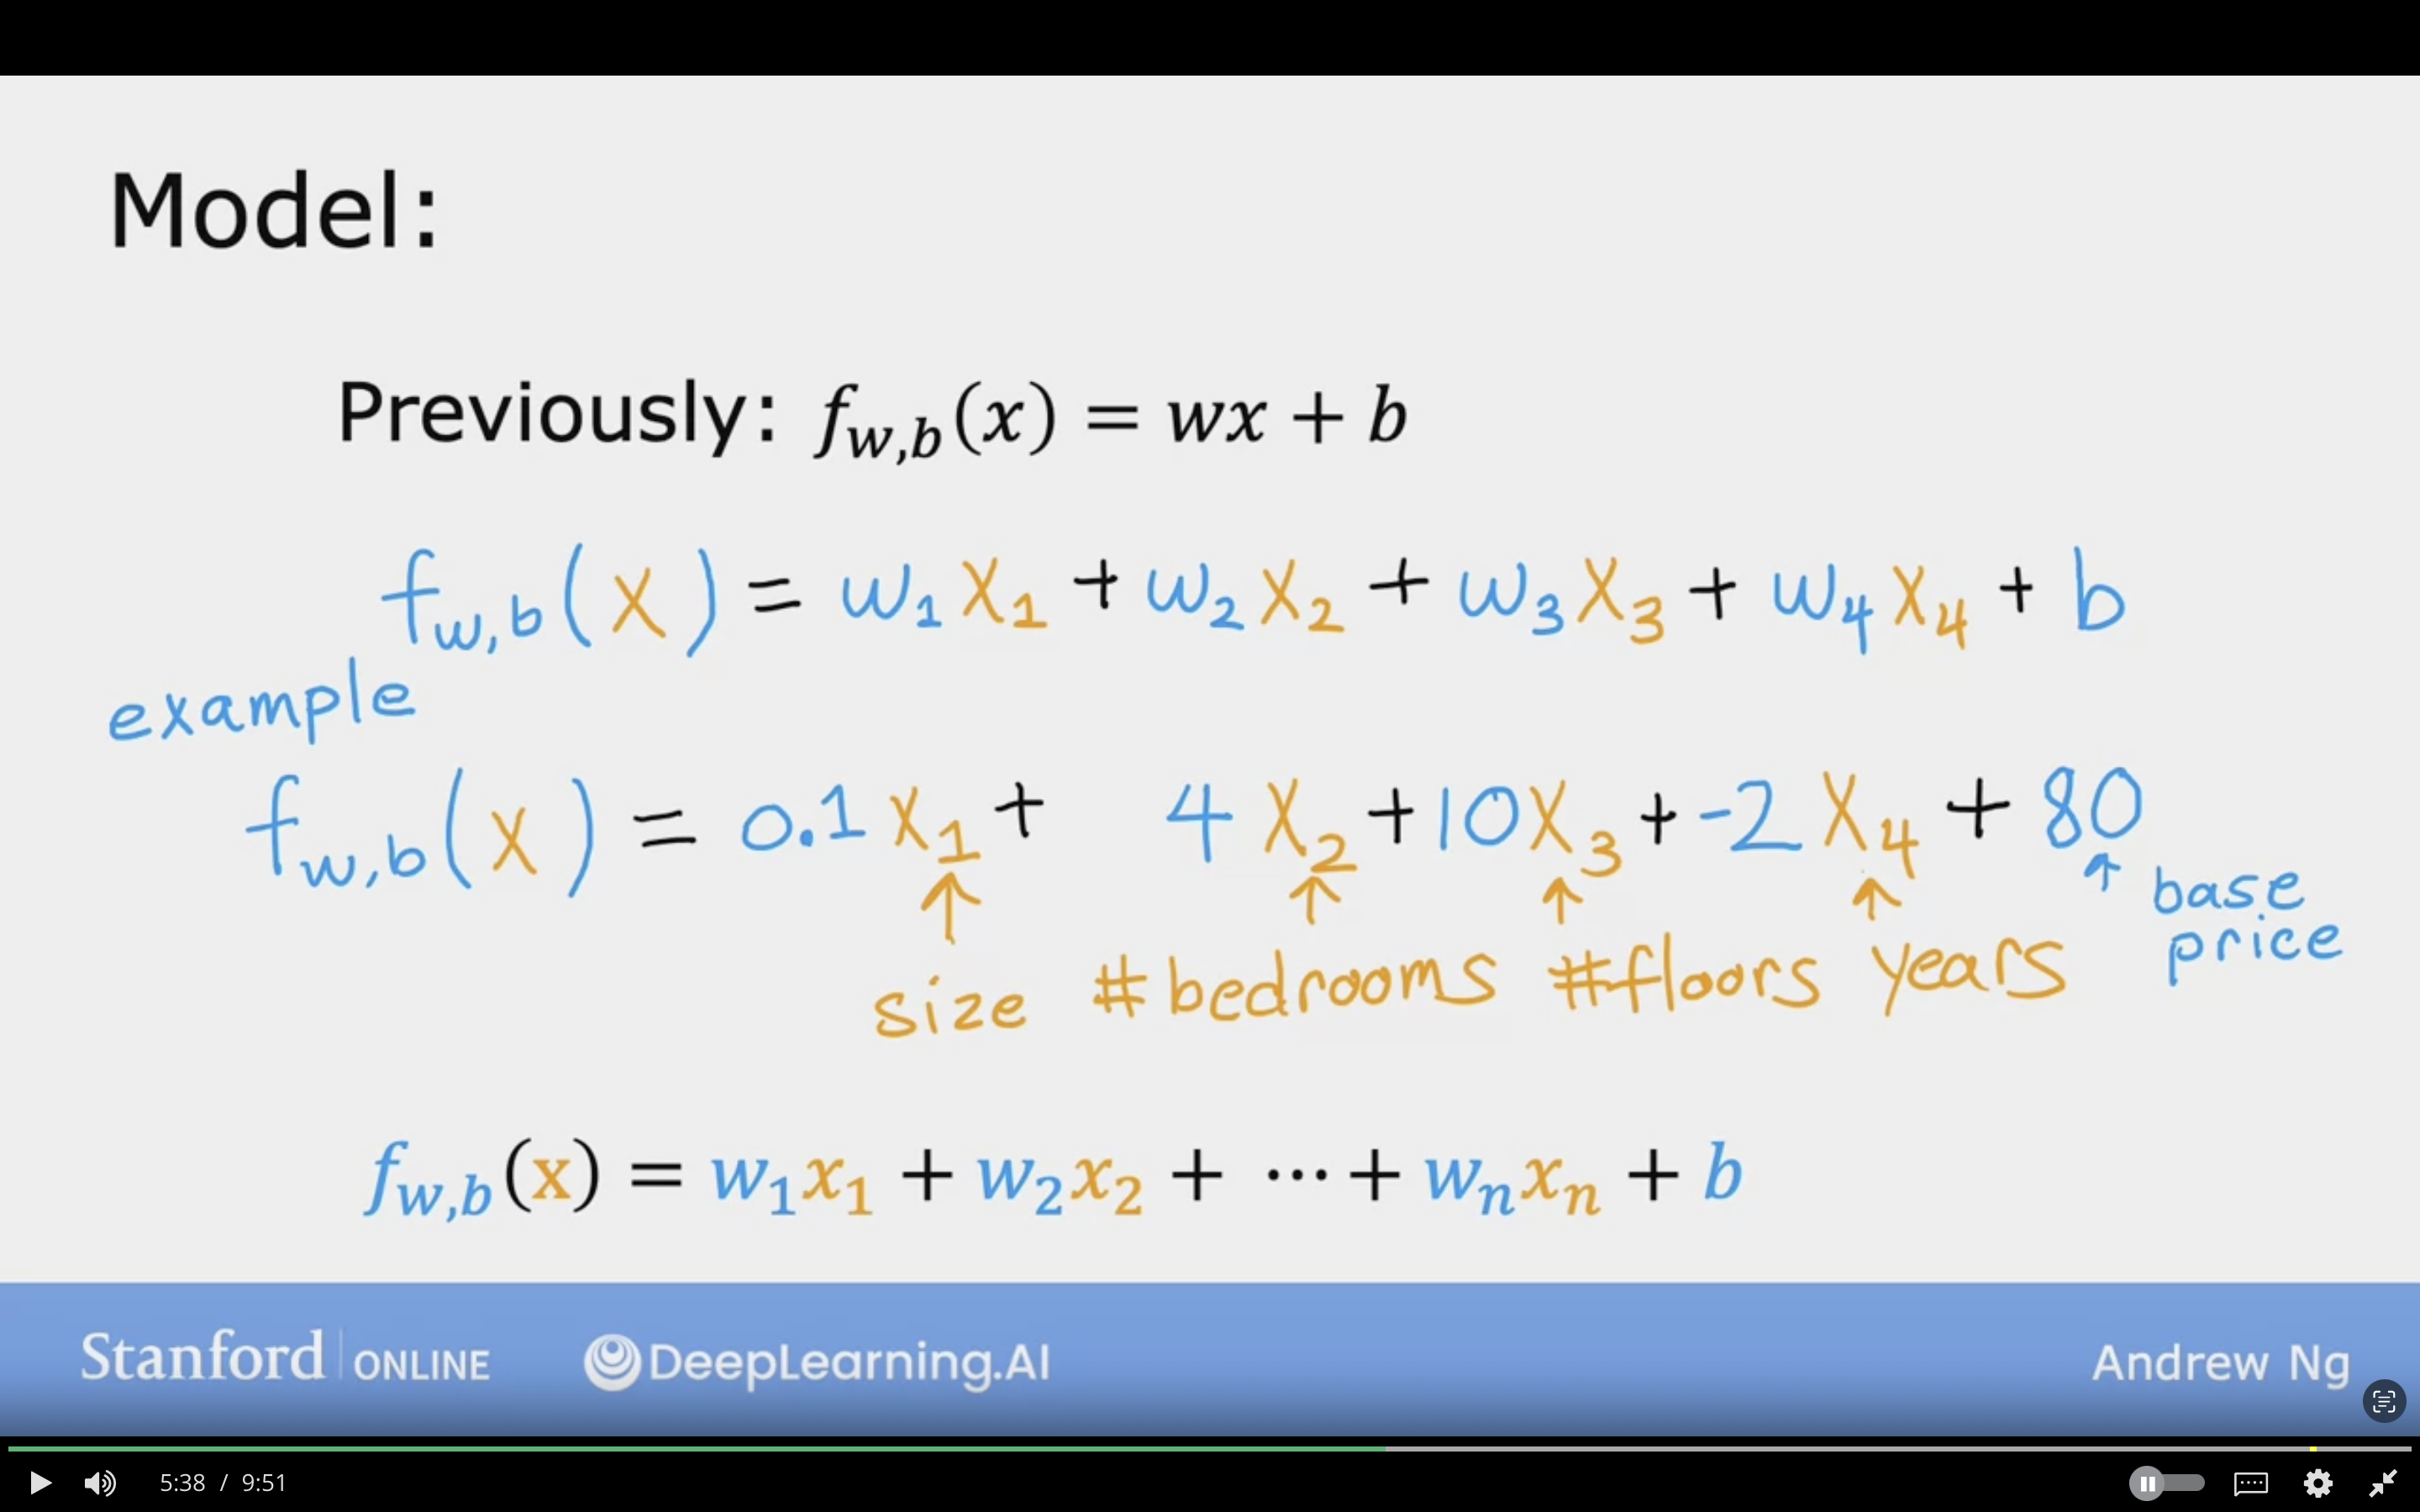 Model:
Previously: f_{w,b}(x) = wx + b
f_{w,b}(x) = w_1 x_1 + w_2 x_2 + w_3 x_3 + w_4 x_4 + b
example
f_{w,b}(x) = 0.1 x_1 + 4 x_2 + 10 x_3 + -2 x_4 + 80
↑ ↑ ↑ ↑ ↑ base price
size #bedrooms #floors years
f_{w,b}(x) = w_1 x_1 + w_2 x_2 + ⋯ + w_n x_n + b
Stanford | ONLINE DeepLearning.AI Andrew Ng
5:38 / 9:51